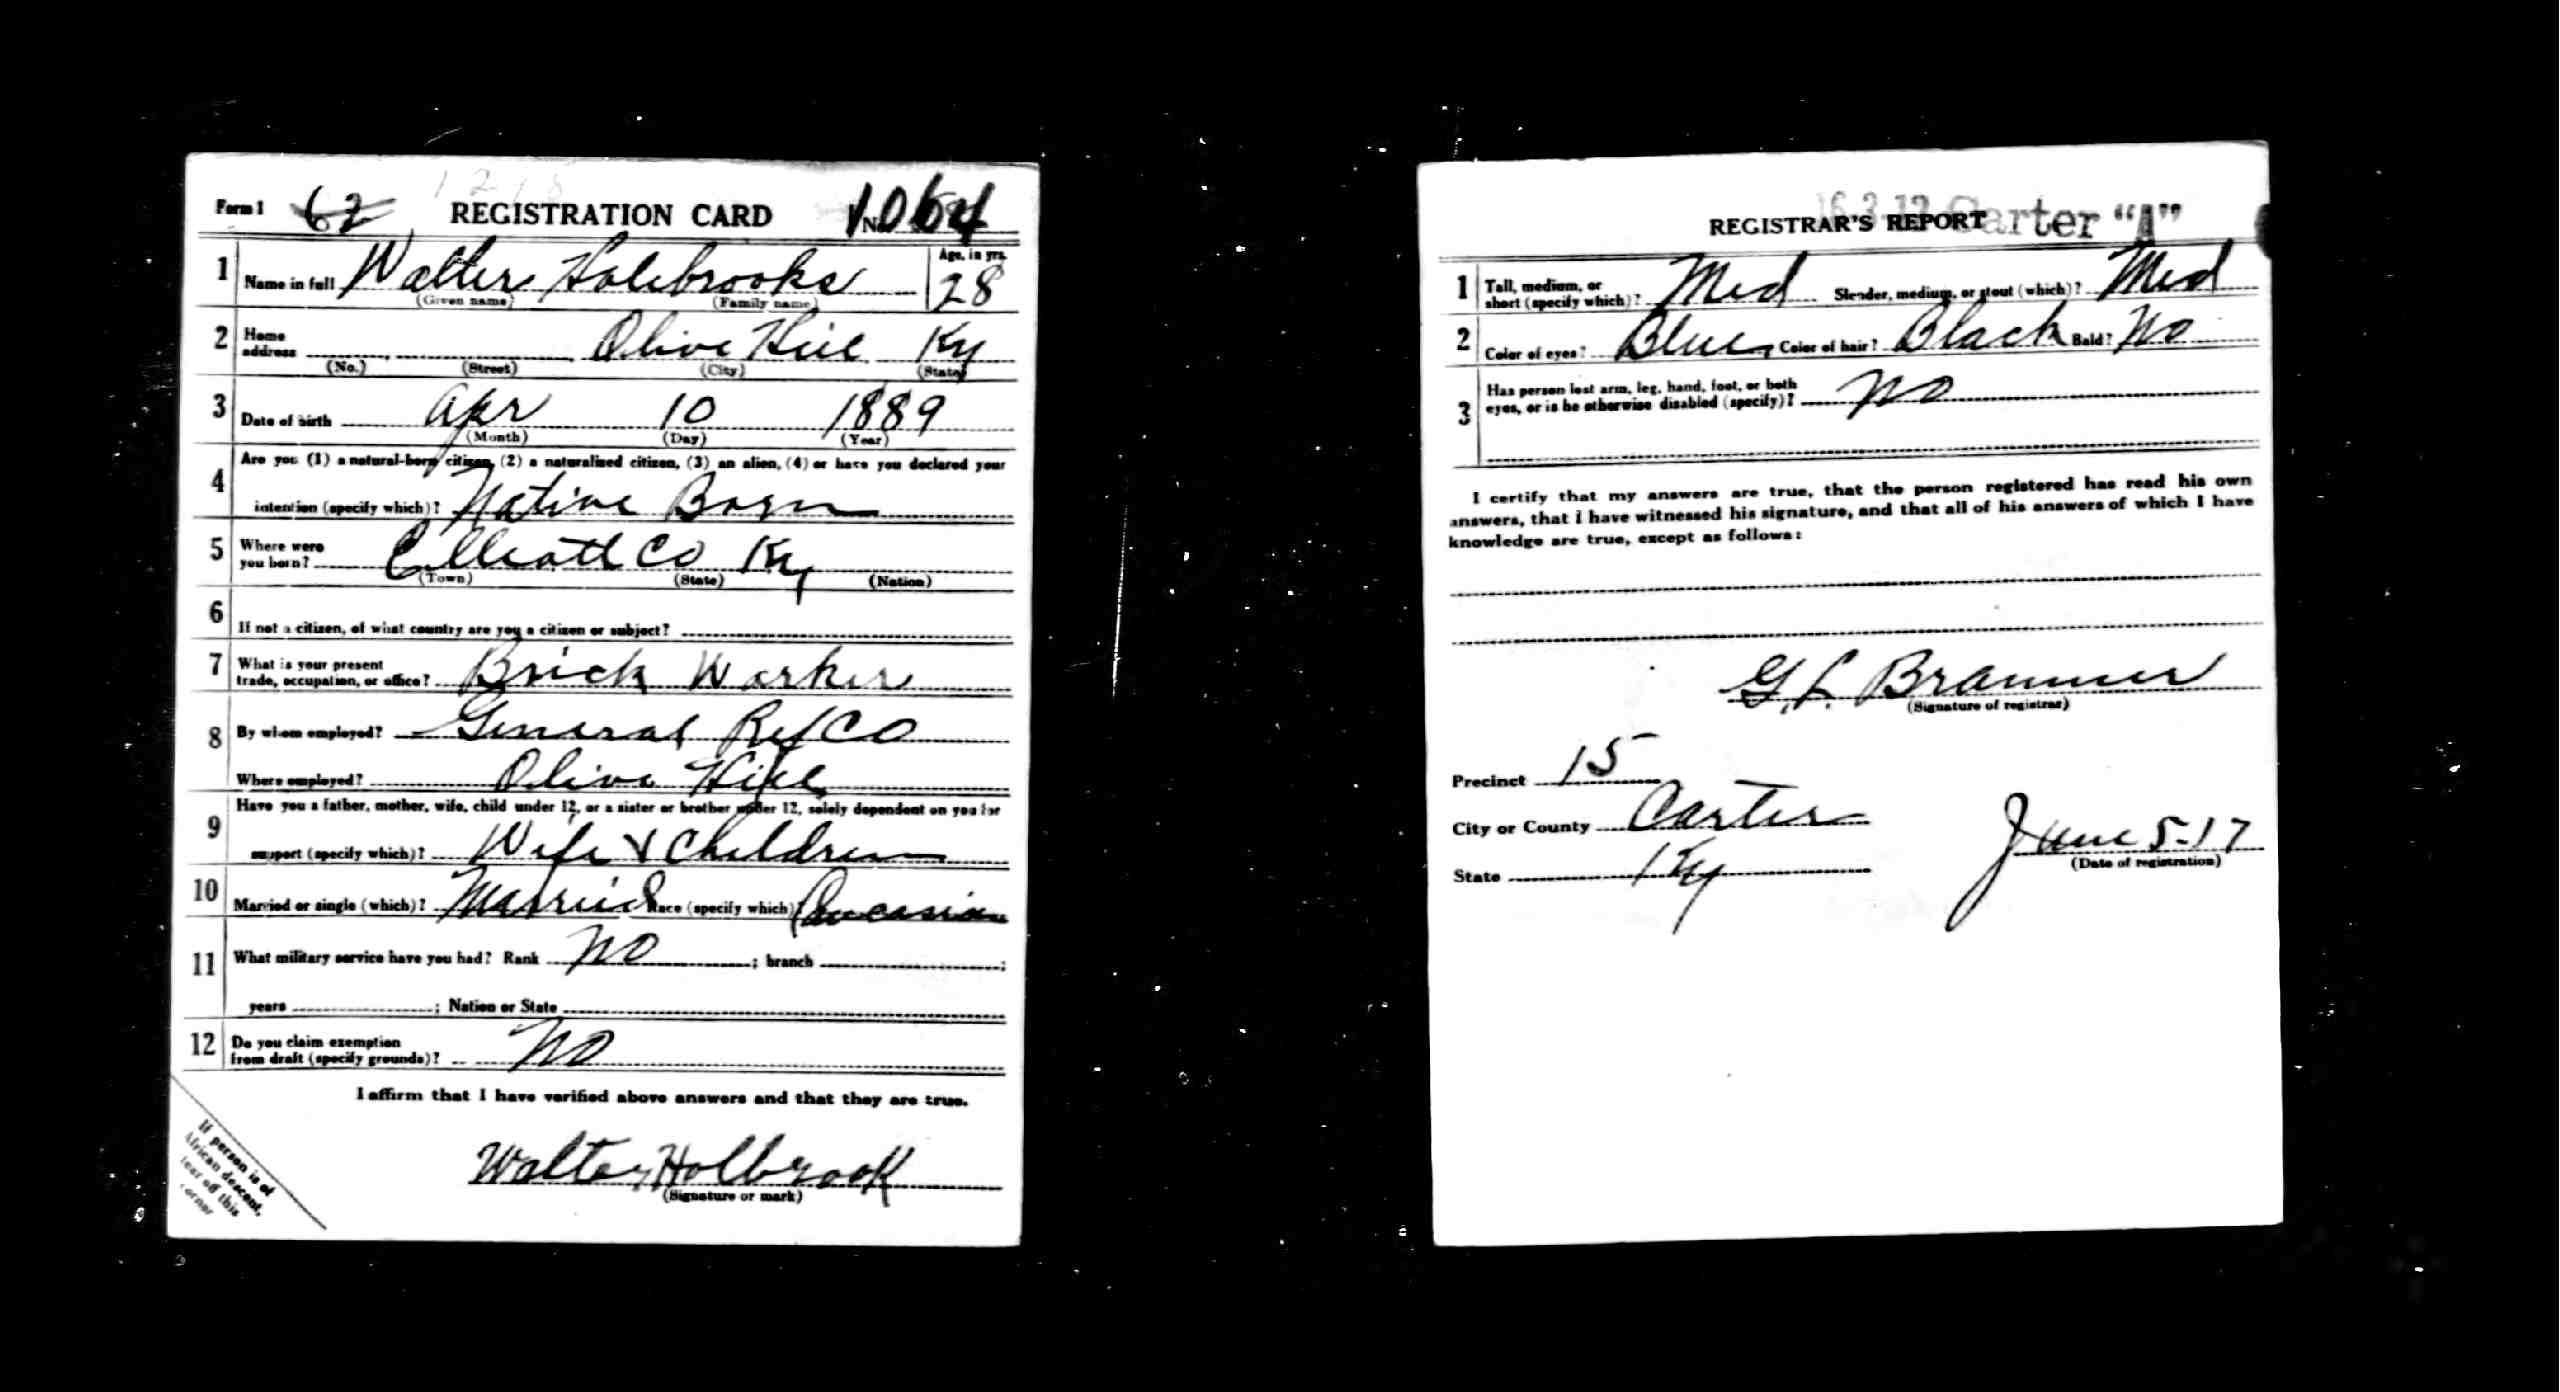 Form 1 62 REGISTRATION CARD No. 1064
1 Name in full Walter Holebrooks Age, in yrs. 28
(Given name) (Family name)
2 Home address Olive Hill Ky
(No.) (Street) (City) (State)
3 Date of birth Apr 10 1889
(Month) (Day) (Year)
4 Are you (1) a natural-born citizen, (2) a naturalized citizen, (3) an alien, (4) or have you declared your
intention (specify which)? Native Born
5 Where were you born? Elliott Co Ky
(Town) (State) (Nation)
6 If not a citizen, of what country are you a citizen or subject?
7 What is your present
trade, occupation, or office? Brick Worker
8 By whom employed? General Ref Co
Where employed? Olive Hill
9 Have you a father, mother, wife, child under 12, or a sister or brother under 12, solely dependent on you for
support (specify which)? Wife & Children
10 Married or single (which)? Married Race (specify which)? Caucasian
11 What military service have you had? Rank No ; branch ;
years ; Nation or State
12 Do you claim exemption
from draft (specify grounds)? No
I affirm that I have verified above answers and that they are true.
Walter Holbrook
(Signature or mark)
If person is of
African descent,
tear off this
corner
REGISTRAR'S REPORT Carter "A"
1 Tall, medium, or
short (specify which)? Med Slender, medium, or stout (which)? Med
2 Color of eyes? Blue Color of hair? Black Bald? No
3 Has person lost arm, leg, hand, foot, or both
eyes, or is he otherwise disabled (specify)? No
I certify that my answers are true, that the person registered has read his own
answers, that I have witnessed his signature, and that all of his answers of which I have
knowledge are true, except as follows:
G. L. Brammer
(Signature of registrar)
Precinct 15
City or County Carter
State Ky
June 5-17
(Date of registration)